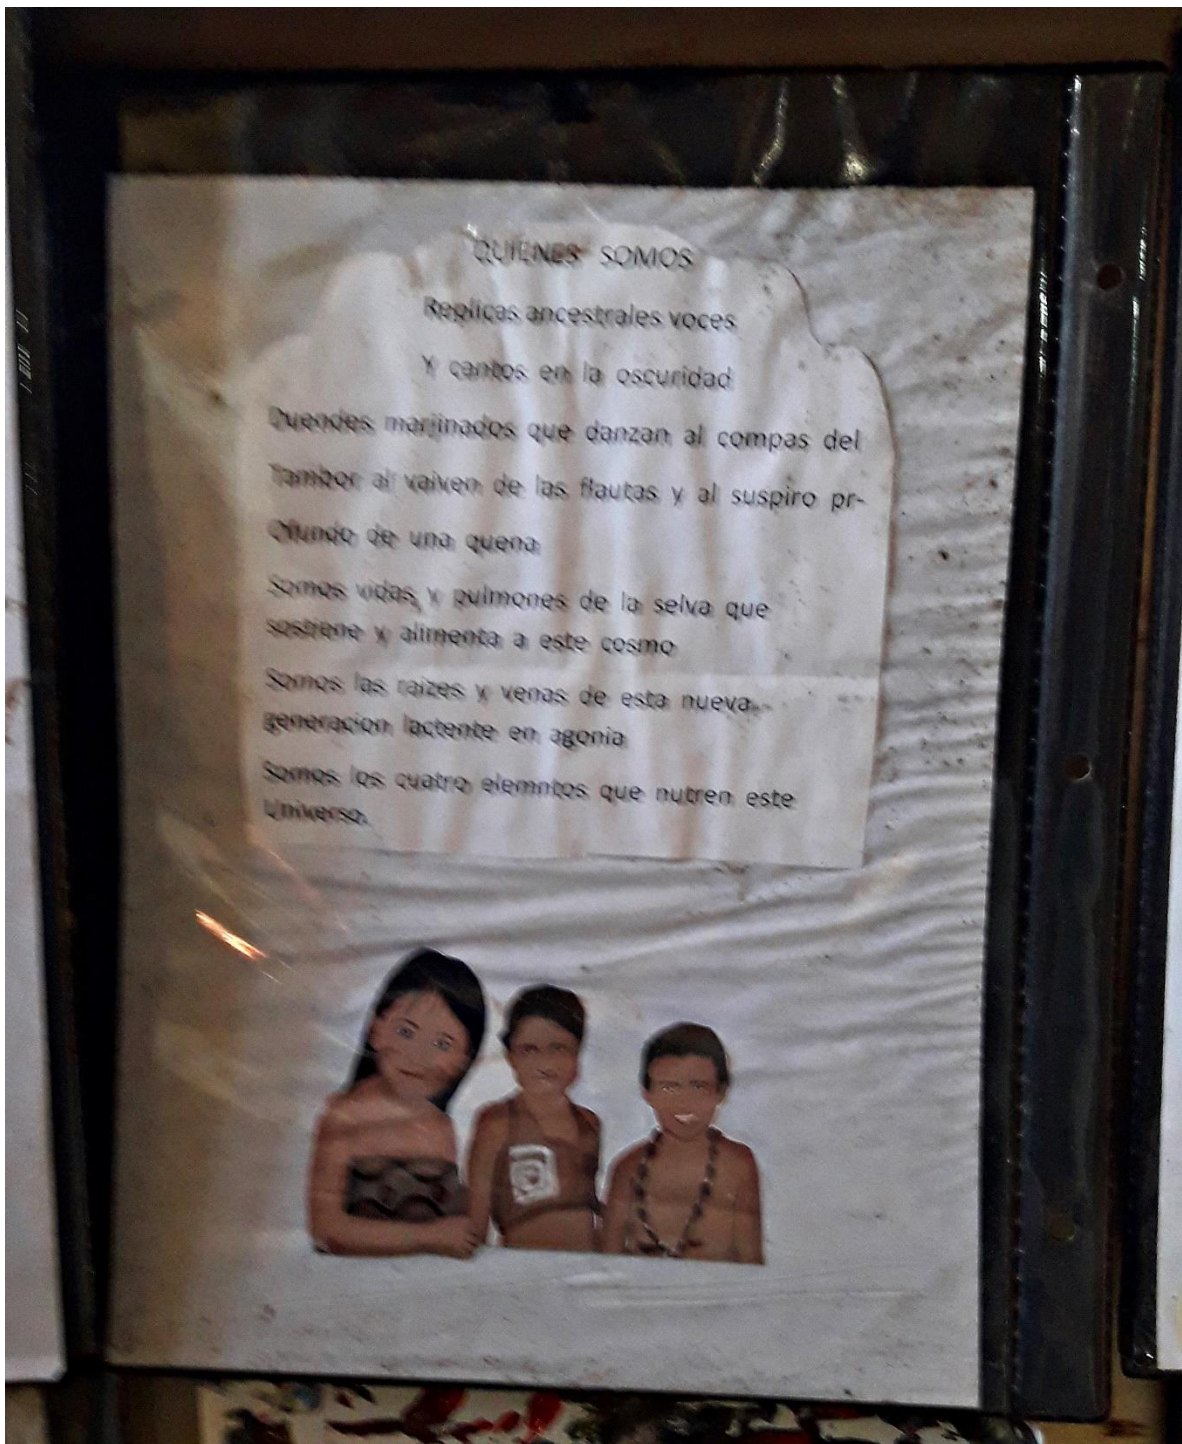 QUIENES SOMOS
Replicas ancestrales voces
Y cantos en la oscuridad
Duendes marjinados que danzan al compas del
Tambor al vaiven de las flautas y al suspiro pr-
Ofundo de una quena
Somos vidas y pulmones de la selva que
sostiene y alimenta a este cosmo
Somos las raizes y venas de esta nueva
generacion lactente en agonia
Somos los cuatro elemntos que nutren este
Universo.